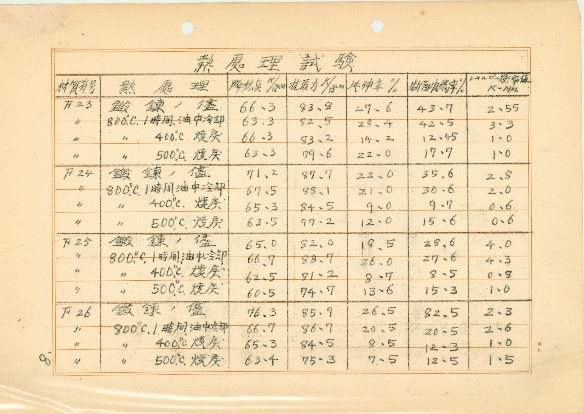 熱處理試驗
材質番号 熱處理 降伏点 K/□mm 抗張力 K/□mm 延伸率 % 断面收縮率 % K-M/cm²
第23 鍛錬ノ儘 66.3 83.8 27.6 43.7 2.55
〃 800℃.1時間.油中冷却 63.3 82.5 28.4 42.5 3.3
〃 〃 400℃ 焼戻 66.3 83.2 14.2 12.45 1.0
〃 〃 500℃. 焼戻 63.3 79.6 22.0 17.7 1.0
第24 鍛錬ノ儘 71.2 87.7 22.0 35.6 2.8
〃 800℃.1時間油中冷却 67.5 88.1 21.0 30.6 2.0
〃 〃 400℃ 焼戻 65.3 84.5 9.0 9.7 0.6
〃 〃 500℃. 焼戻 63.5 77.2 12.0 15.6 0.6
第25 鍛錬ノ儘 65.0 82.0 18.5 28.6 4.0
〃 800℃.1時間.油中冷却 66.7 88.7 26.0 27.6 4.3
〃 〃 400℃ 焼戻 62.5 81.2 8.7 8.5 0.8
〃 〃 500℃. 焼戻 60.5 74.7 13.6 15.3 1.0
第26 鍛錬ノ儘 76.3 85.9 26.5 82.5 2.3
〃 800℃.1時間油中冷却 66.7 86.7 20.5 20.5 2.6
〃 〃 400℃ 焼戻 65.3 84.5 8.5 12.3 1.0
〃 〃 500℃. 焼戻 63.4 75.3 7.5 12.5 1.5
8.